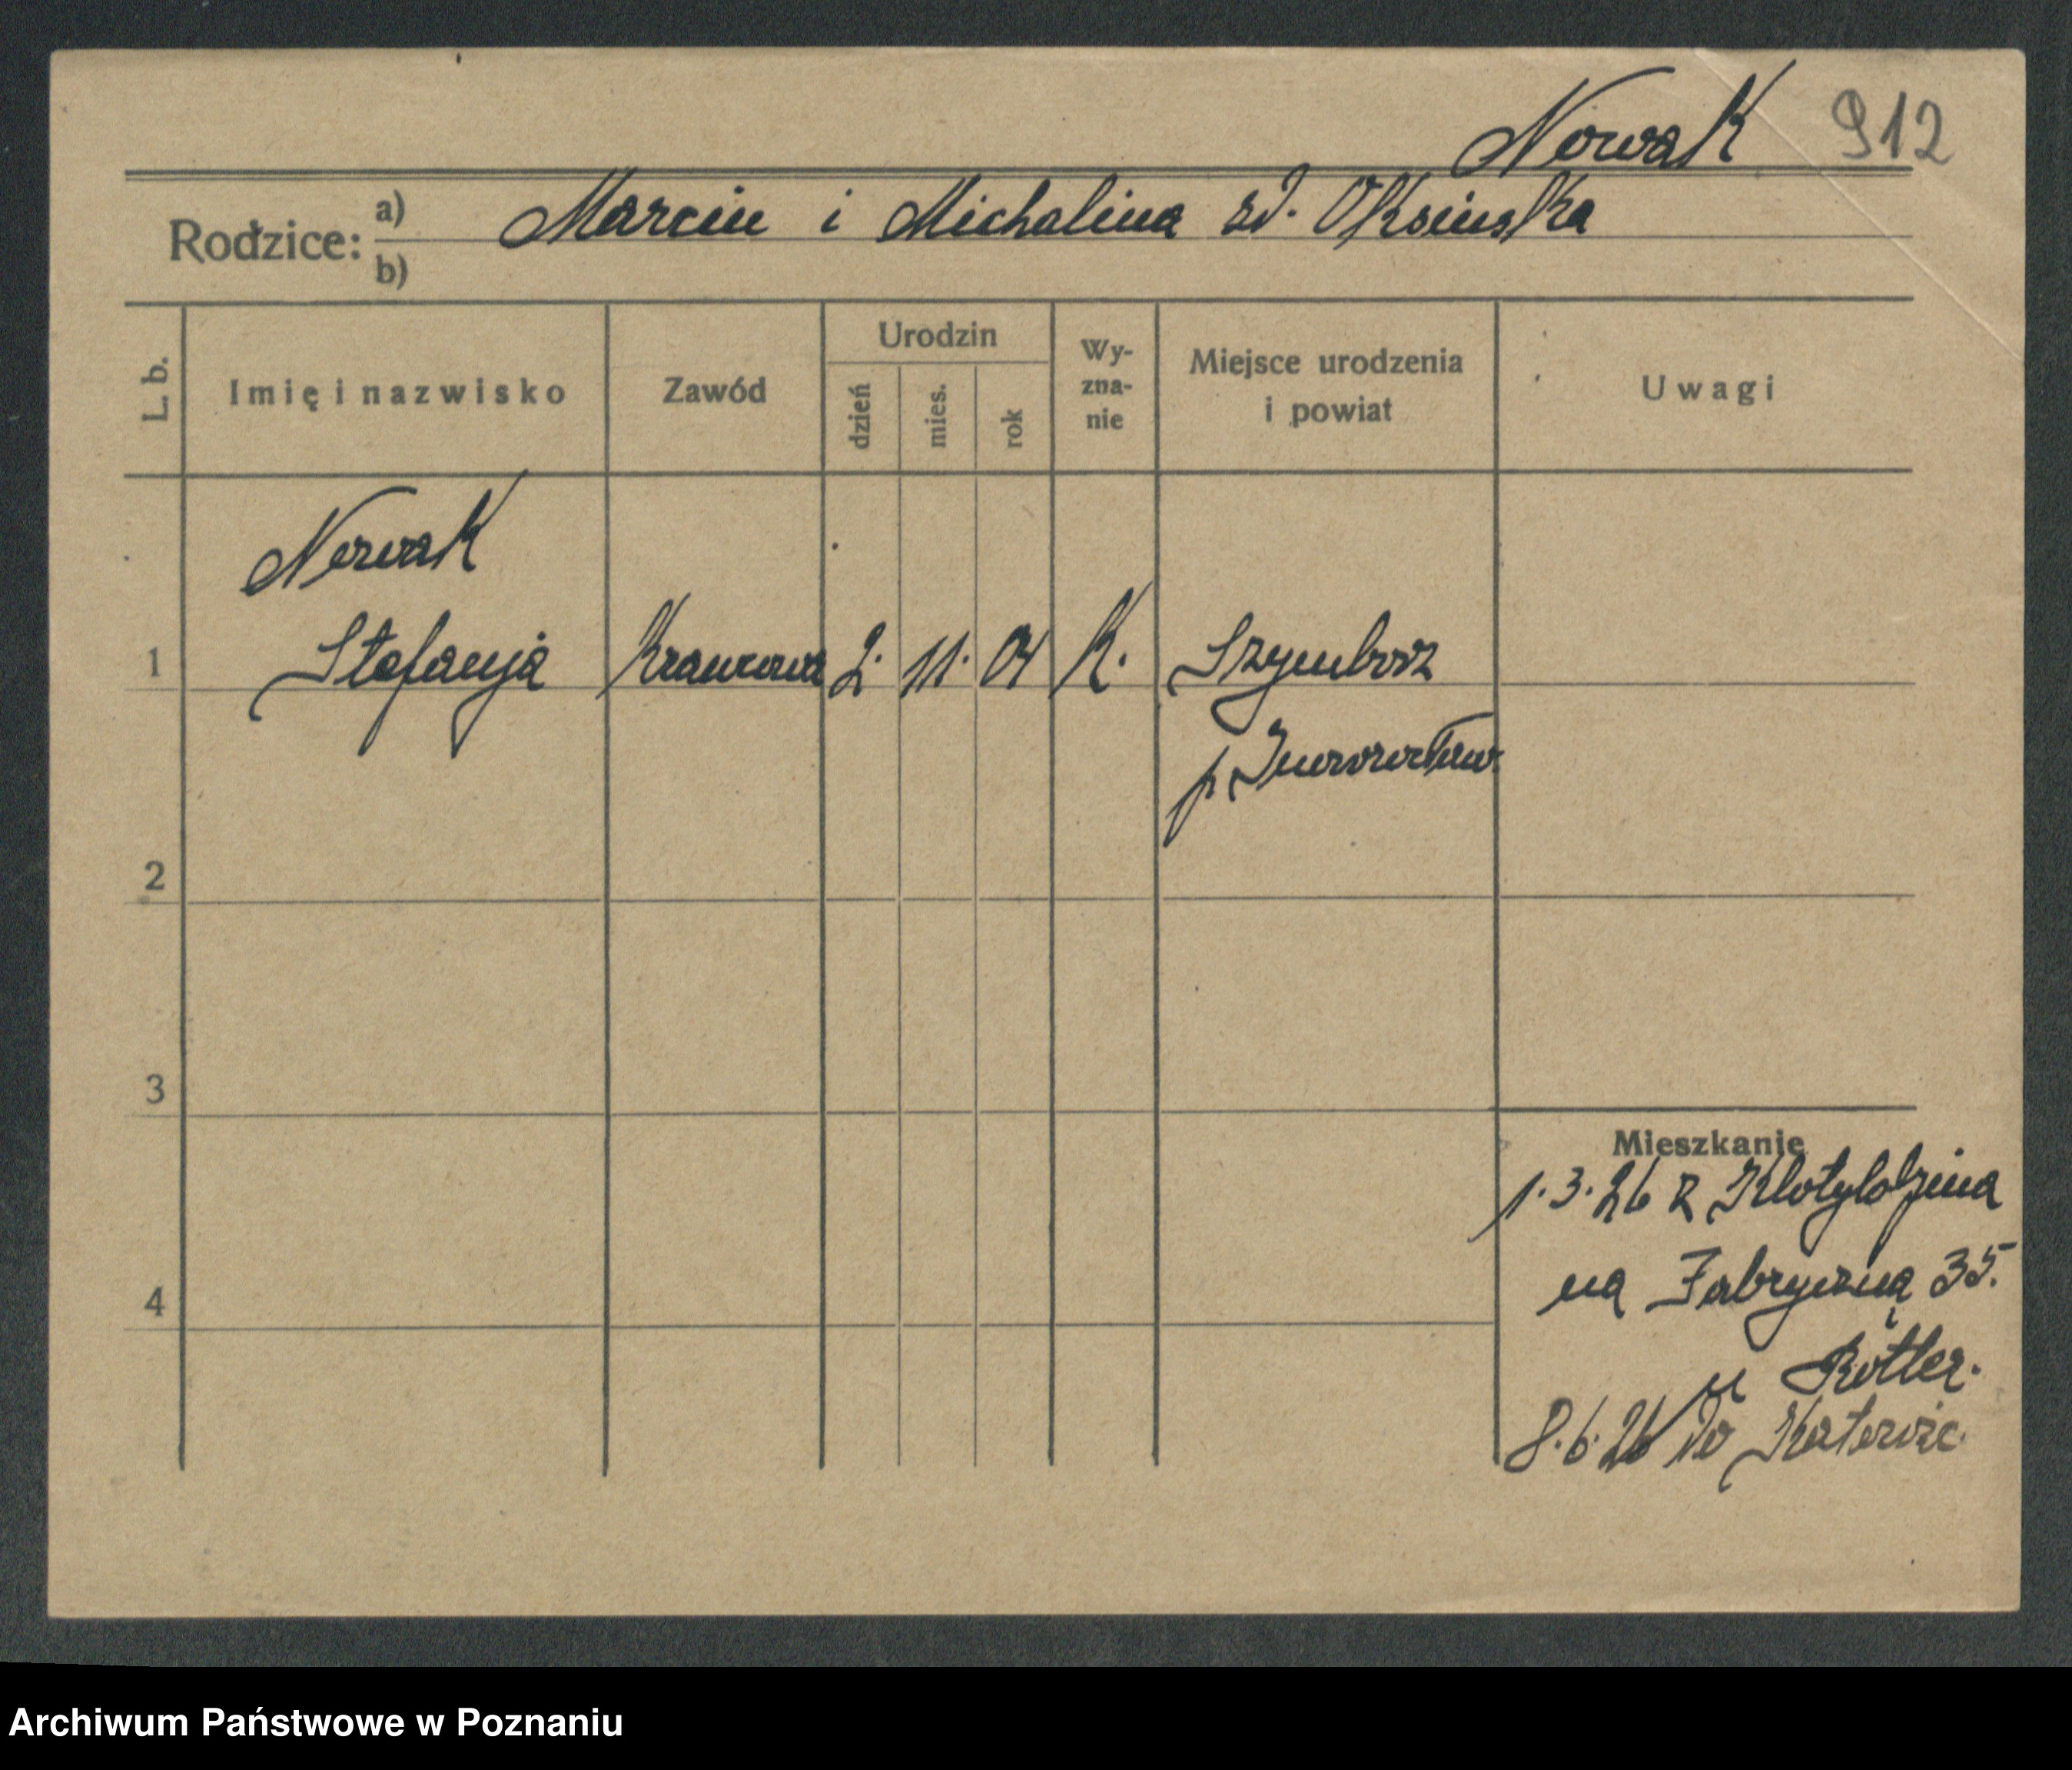 Nowak 912
Rodzice: a) Marcin i Michalina zd. Oksinska
b)
L. b. Imię i nazwisko Zawód Urodzin dzień mies. rok Wy-zna-nie Miejsce urodzenia i powiat Uwagi
Nowak
1 Stefanja Krawcowa 2. 11. 04 K. Szymborz
p Inowrocław.
2
3
Mieszkanie
1.3.26 z Klotyldzina
na Fabryczną 35.
4
u Rotler.
8.6.26 do Katowic.
Archiwum Państwowe w Poznaniu